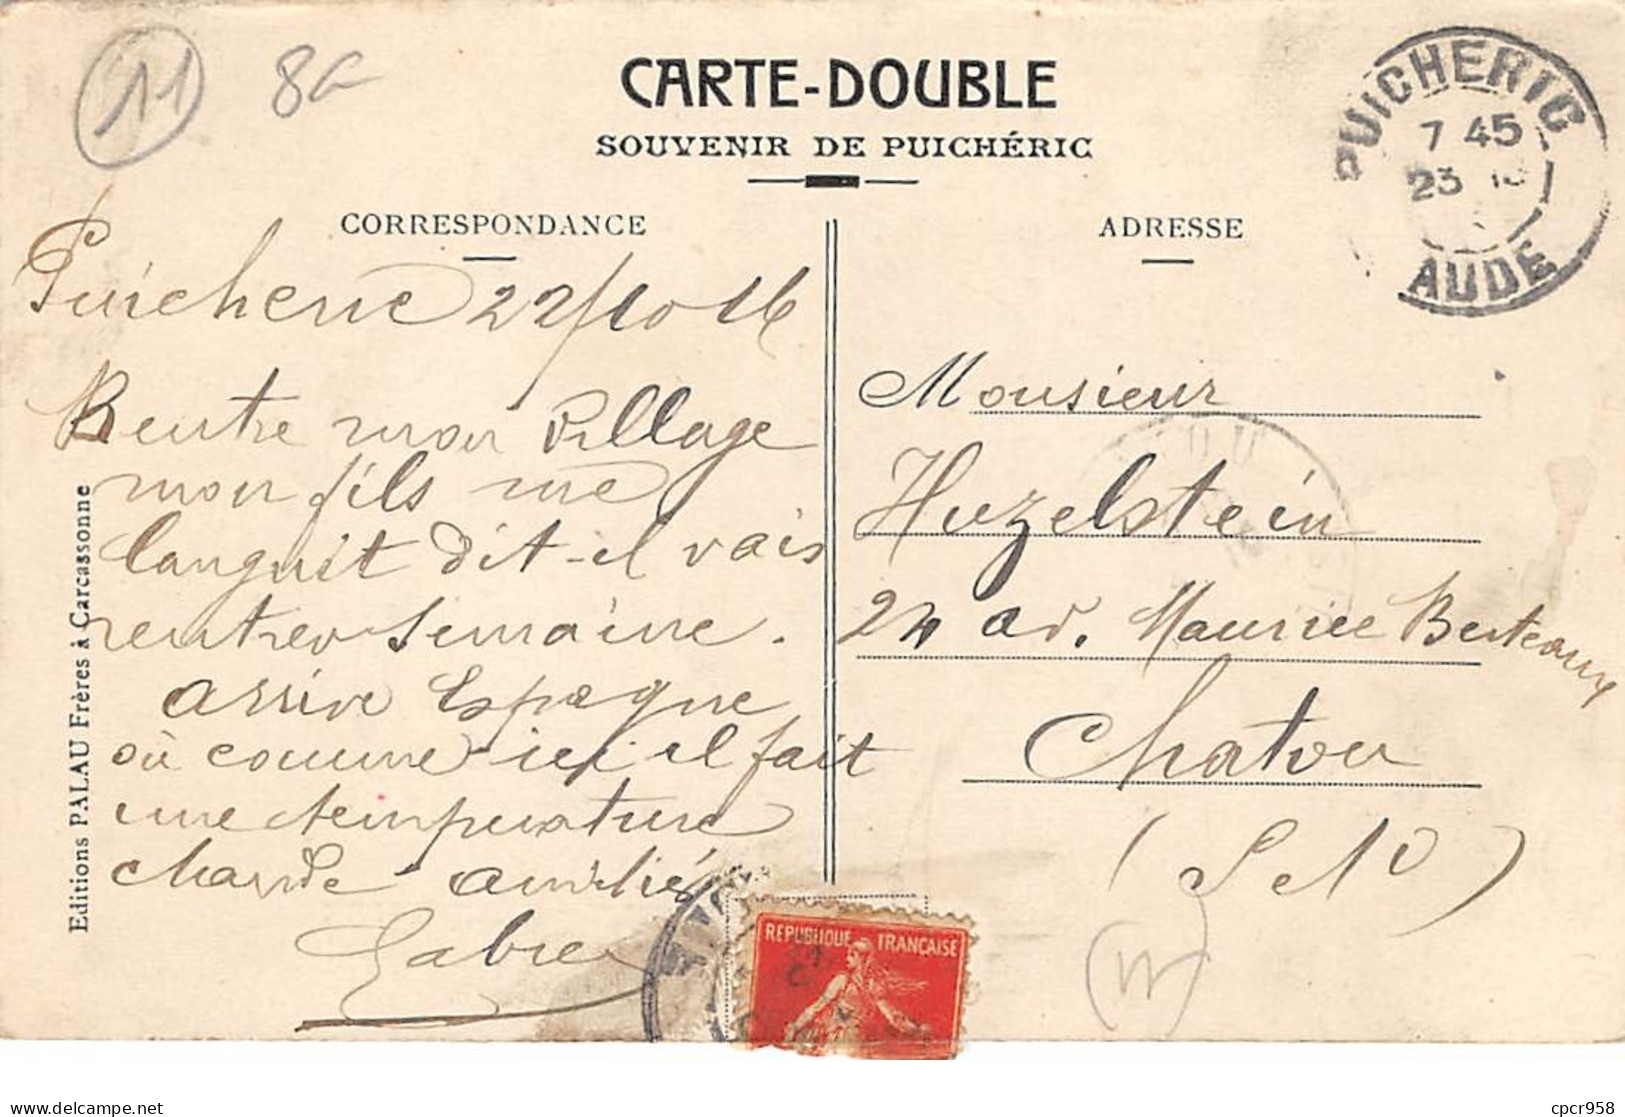 11
CARTE-DOUBLE
SOUVENIR DE PUICHÉRIC
PUICHERIC
7 45
23
AUDE
CORRESPONDANCE
Puicheric 22/10 16
Rentre mon village
mon fils me
languit dit-il vais
rentrer semaine.
arrive Espagne
où comme ici il fait
une température
chaude amitiés
Fabre
Editions PALAU Frères à Carcassonne
ADRESSE
Monsieur
Huzelstein
24 av. Maurice Berteaux
Chatou
(S et O)
REPUBLIQUE FRANÇAISE
cpcr958